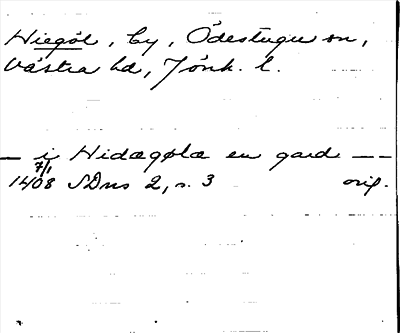 Hiegöl, by, Ödestugu sn,
Västra hd, Jönk. l.
— i Hidægøla en gard — —
7/1
1408 SDns 2, s. 3 orig.